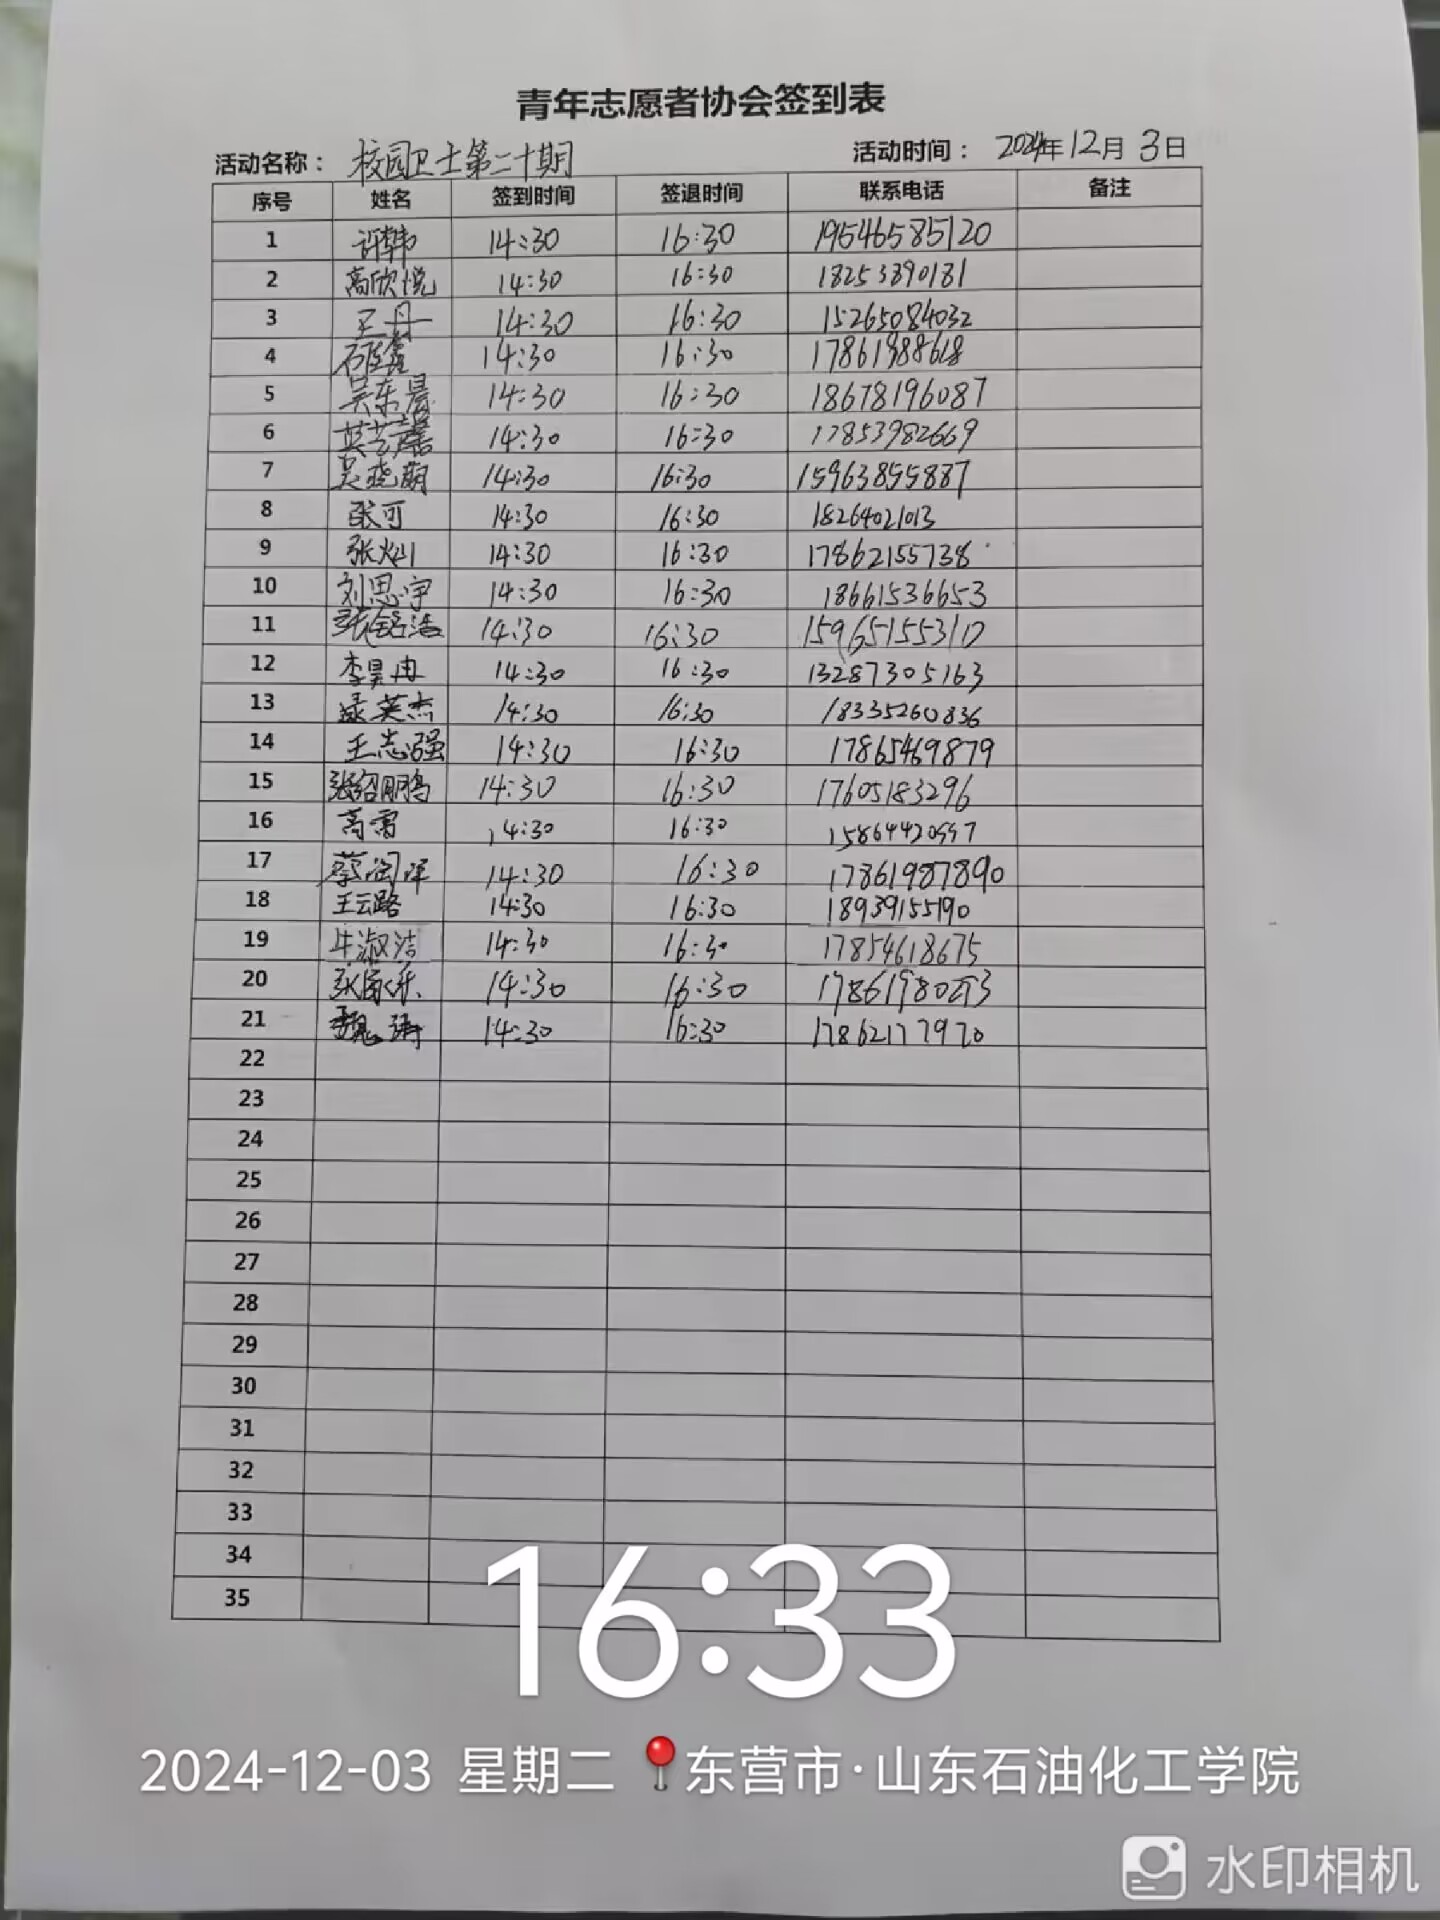 青年志愿者协会签到表
活动名称： 校园卫士第二十期 活动时间： 2024年12月3日
序号 姓名 签到时间 签退时间 联系电话 备注
1 许韩 14:30 16:30 19546585120
2 高欣悦 14:30 16:30 18253890181
3 王丹 14:30 16:30 15265084032
4 14:30 16:30 17861988618
5 吴东晨 14:30 16:30 18678196087
6 14:30 16:30 17853982669
7 吴晓萌 14:30 16:30 15963855887
8 张可 14:30 16:30 18264021013
9 张灿 14:30 16:30 17862155738
10 刘思宇 14:30 16:30 18661536653
11 张舒浩 14:30 16:30 15965155310
12 李昊冉 14:30 16:30 13287305163
13 孟英杰 14:30 16:30 18335260836
14 王志强 14:30 16:30 17865469879
15 张绍鹏 14:30 16:30 17605183296
16 高雷 14:30 16:30
17 14:30 16:30 17861987890
18 王云路 14:30 16:30 18939155190
19 牛淑洁 14:30 16:30 17854618675
20 张家乐 14:30 16:30
21 魏涛 14:30 16:30 17862177970
22
23
24
25
26
27
28
29
30
31
32
33
34
35
16:33
2024-12-03 星期二 东营市·山东石油化工学院
水印相机